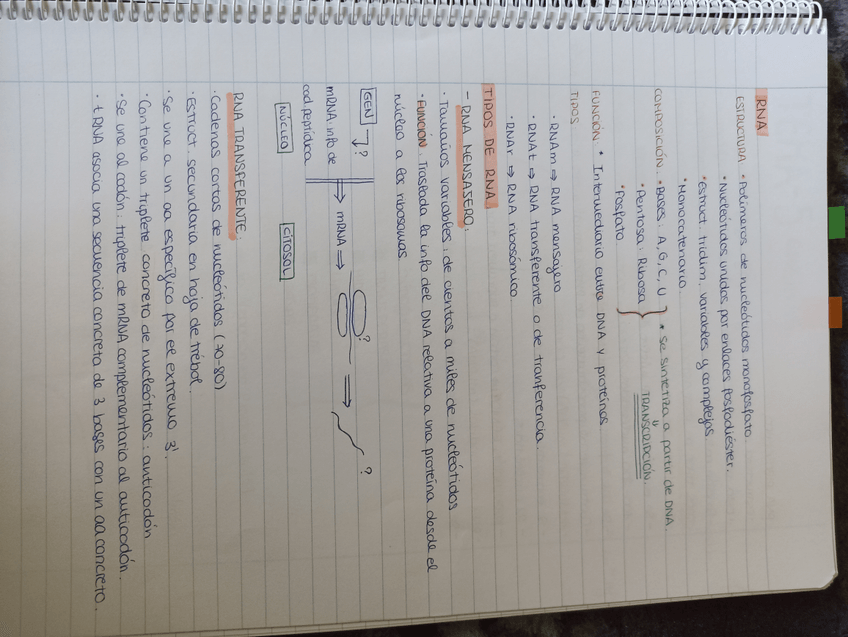 RNA
ESTRUCTURA · Polímeros de nucleótidos monofosfato.
· Nucleótidos unidos por enlaces fosfodiéster.
· Estruct. tridim. variables y complejas
· Monocatenario.
COMPOSICIÓN · Bases: A, G, C, U } * Se sintetiza a partir de DNA.
· Pentosa: Ribosa
TRANSCRIPCIÓN.
· Fosfato
FUNCIÓN * Intermediario entre DNA y proteínas
TIPOS
· RNAm ⇒ RNA mensajero
· RNAt ⇒ RNA transferente o de tranferencia.
· RNAr ⇒ RNA ribosómico.
TIPOS DE RNA
- RNA MENSAJERO:
· Tamaños variables; de cientos a miles de nucleótidos
· FUNCIÓN: Traslada la info del DNA relativa a una proteína desde el
núcleo a los ribosomas
GEN ?
mRNA info de ⇒ mRNA ⇒ ? ⇒ ?
cad. peptídica
NÚCLEO CITOSOL
RNA TRANSFERENTE:
· Cadenas cortas de nucleótidos (70-80)
· Estruct. secundaria en hoja de trébol.
· Se une a un aa específico por el extremo 3'.
· Contiene un triplete concreto de nucleótidos: anticodón
· Se une al codón: triplete de mRNA complementario al anticodón.
· tRNA asocia una secuencia concreta de 3 bases con un aa concreto.